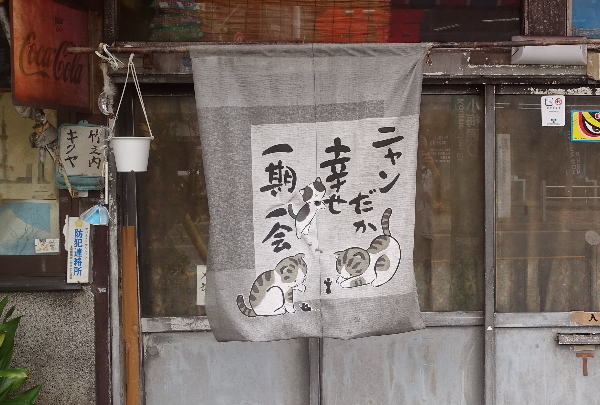 Coca-Cola
竹之内
キクヤ
防犯連絡所
ニャン
だか
幸せ
一期一会
入
〒